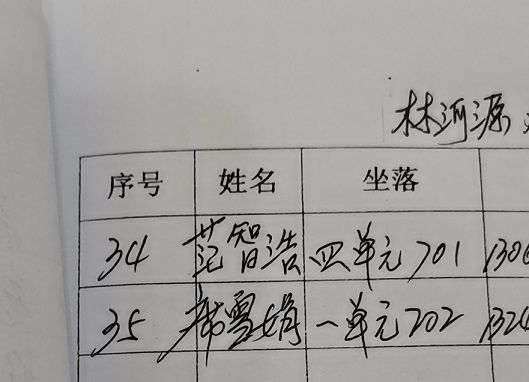 林河源
序号 姓名 坐落
34 范智浩 四单元701 1306
35 席雪娟 一单元202 1324